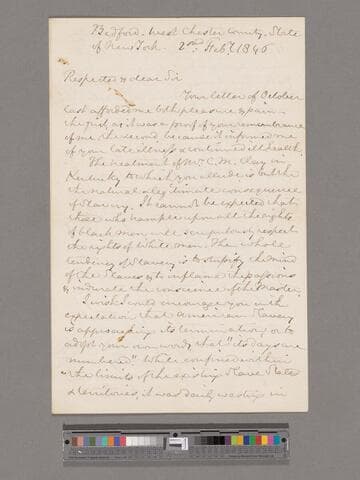 Bedford. West Chester County. State
of New York. 2nd Feby. 1846
Respected & dear Sir
Your letter of October
last afforded me both pleasure & pain –
the first, as it was a proof of your remembrance
of me, the second because it informed me
of your late illness & continued ill health.
The treatment of Mr C. M. Clay in
Kentucky to which you allude is but the
the natural & legitimate consequence
of Slavery. It cannot be expected that
those who trample upon all the rights
of black men will scrupulously respect
the rights of White men. The whole
tendency of Slavery is to stupify the mind
of the Slaves & to inflame the passions
& indurate the conscience of the Master.
I wish I could encourage you in the
expectation that American Slavery
is approaching its termination, or to
adopt your own words that "its days are
numbered". While confined within
the limits of the existing Slave States
& territories, it was daily wasting in